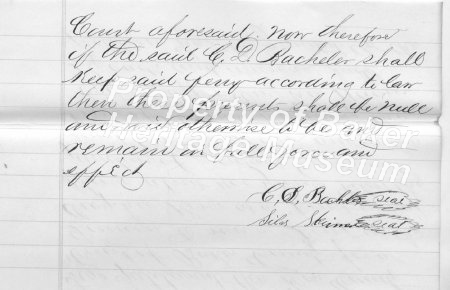 Court aforesaid now therefore
if the said C. D. Bachelor shall
Keep said ferry according to law
then the presents shall be null
and otherwise to be and
remain in full force and
effect
C. D. Bachelor seal
Silas seal
Property of Baxter
Heritage Museum